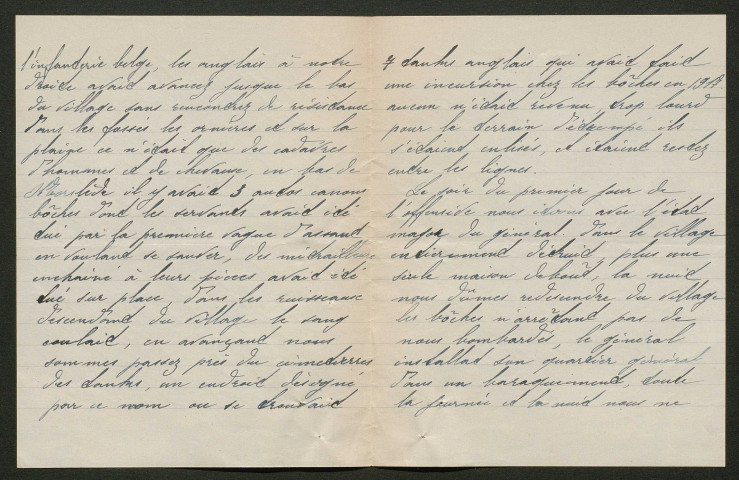 l'infanterie belge, les anglais à notre
droite avait avancez jusque le bas
du village sans rencontrez de résistance
Dans les fossés les ornières et sur la
plaine ce n'était que des cadavres
d'hommes et de chevaux, en bas de
Moorslède il y avait 3 autos canons
bôches dont les servants avait été
tué par la première vague d'assaut
en voulant se sauver, des mitrailleurs
enchainé à leurs pièces avait été
tué sur place, Dans les ruisseaux
descendant du village le sang
coulait, en avançant nous
sommes passez près du cimetierres
des tanks, un endroit désigné
par ce nom ou se trouvait
7 tanks anglais qui avait fait
une incursion chez les bôches en 1917
aucun n'était revenu, trop lourd
pour le terrain détrempé ils
s'étaient enlisés, et étaient restez
entre les lignes.
Le soir du premier jour de
l'offensive nous étions avec l'état
major du général dans le village
entierement détruit, plus une
seule maison debout, la nuit
nous dûmes redescendre du village
les bôches n'arrêtant pas de
nous bombardés, le général
installat son quartier général
dans un baraquement, toute
la journée et la nuit nous ne